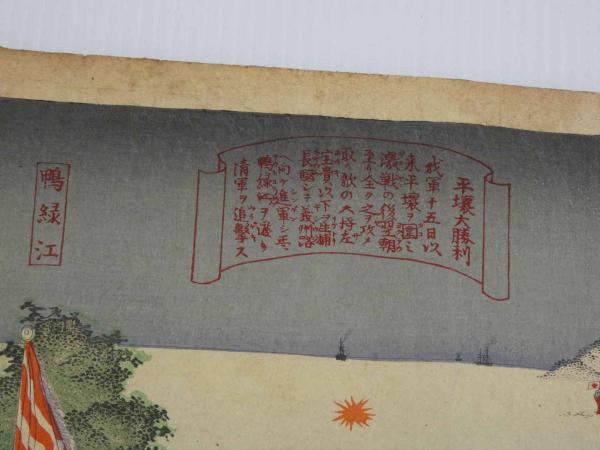 平壌大勝利
我軍十五日以
来平壌ヲ囲ミ
激戦の後翌朝
至り全ク之ヲ攻メ
取敵の大将左
宝貴以下ヲ生捕
長駆シテ義州路
へ向ケ進軍シ
鴨緑江ヲ渡リ
清軍ヲ追撃ス
鴨緑江